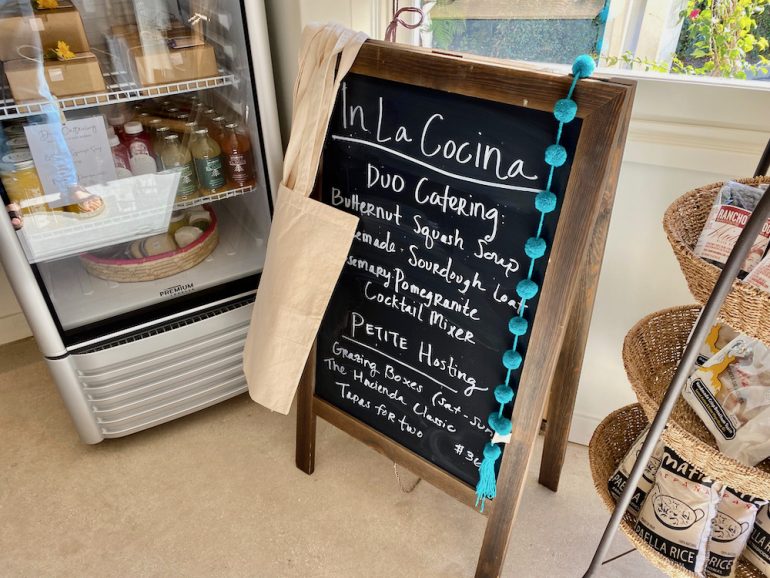 In La Cocina
Duo Catering:
Butternut Squash Soup
Sourdough Loaf
Pomegranate
Cocktail Mixer
Petite Hosting
Grazing Boxes (sat-sun
The Hacienda Classic
Tapas for two
Duo Catering
PREMIUM
RANCHO
PAELLA RICE
RICE